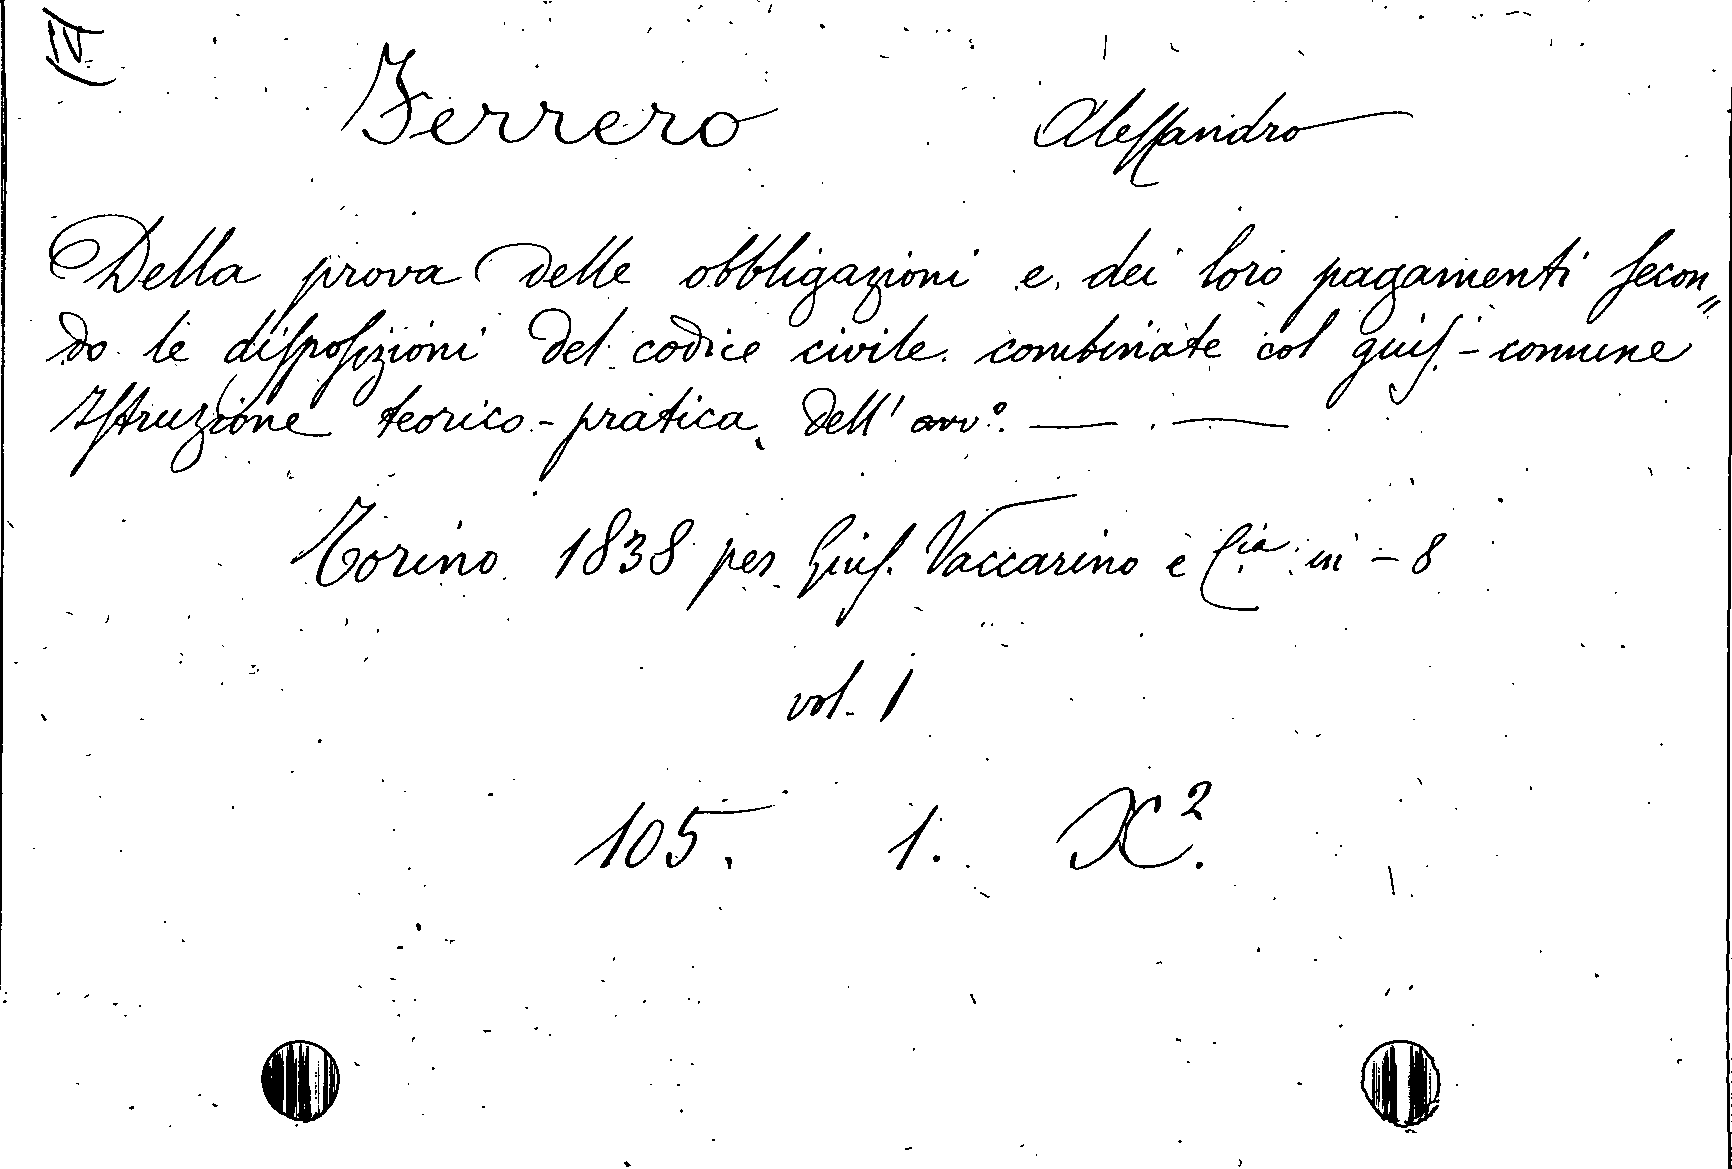 Ferrero Alessandro
Della prova delle obbligazioni e dei loro pagamenti secon„
do le disposizioni del codice civile combinate col gius. - comune
Istruzione teorico-pratica dell' avv.º — . —
Torino 1838 per Gius. Vaccarino e C.ia in - 8
vol. 1
105. 1. X².